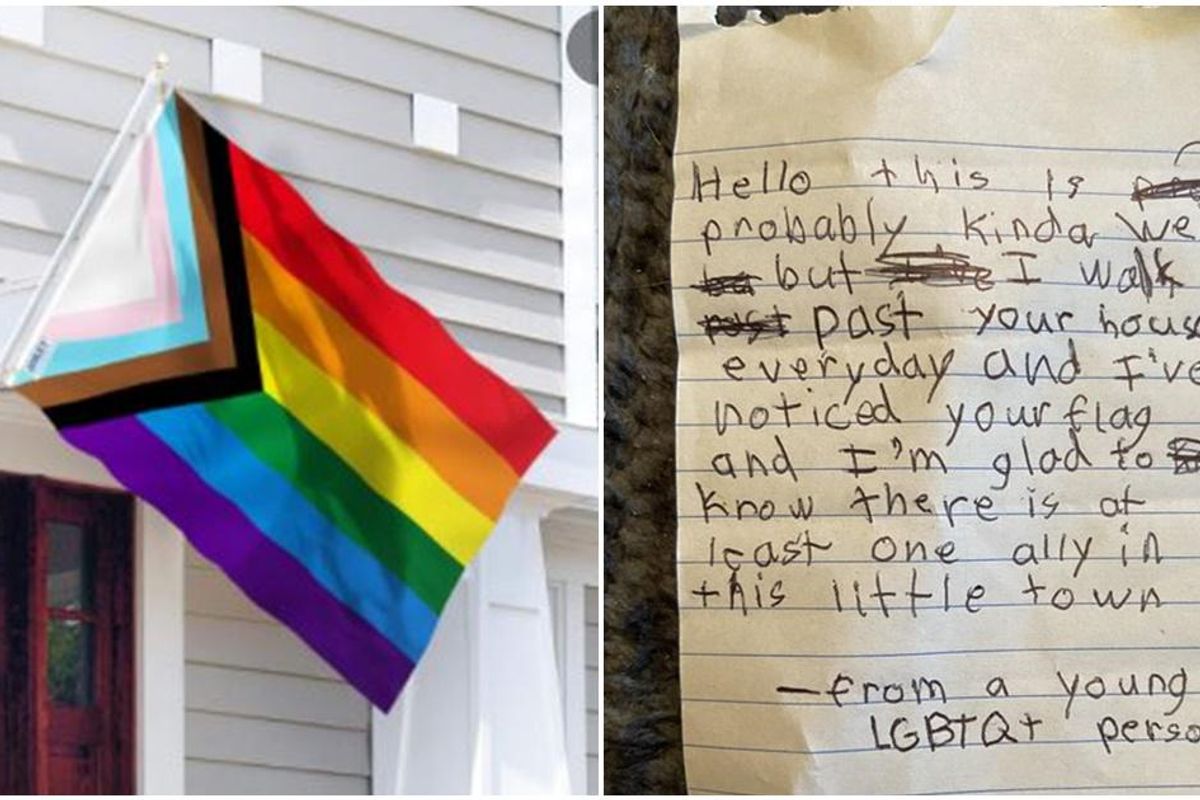 Hello this is
probably kinda we
but I walk
past your hous
everyday and I've
noticed your flag
and I'm glad to
know there is at
least one ally in
this little town
—from a young
LGBTQ+ perso